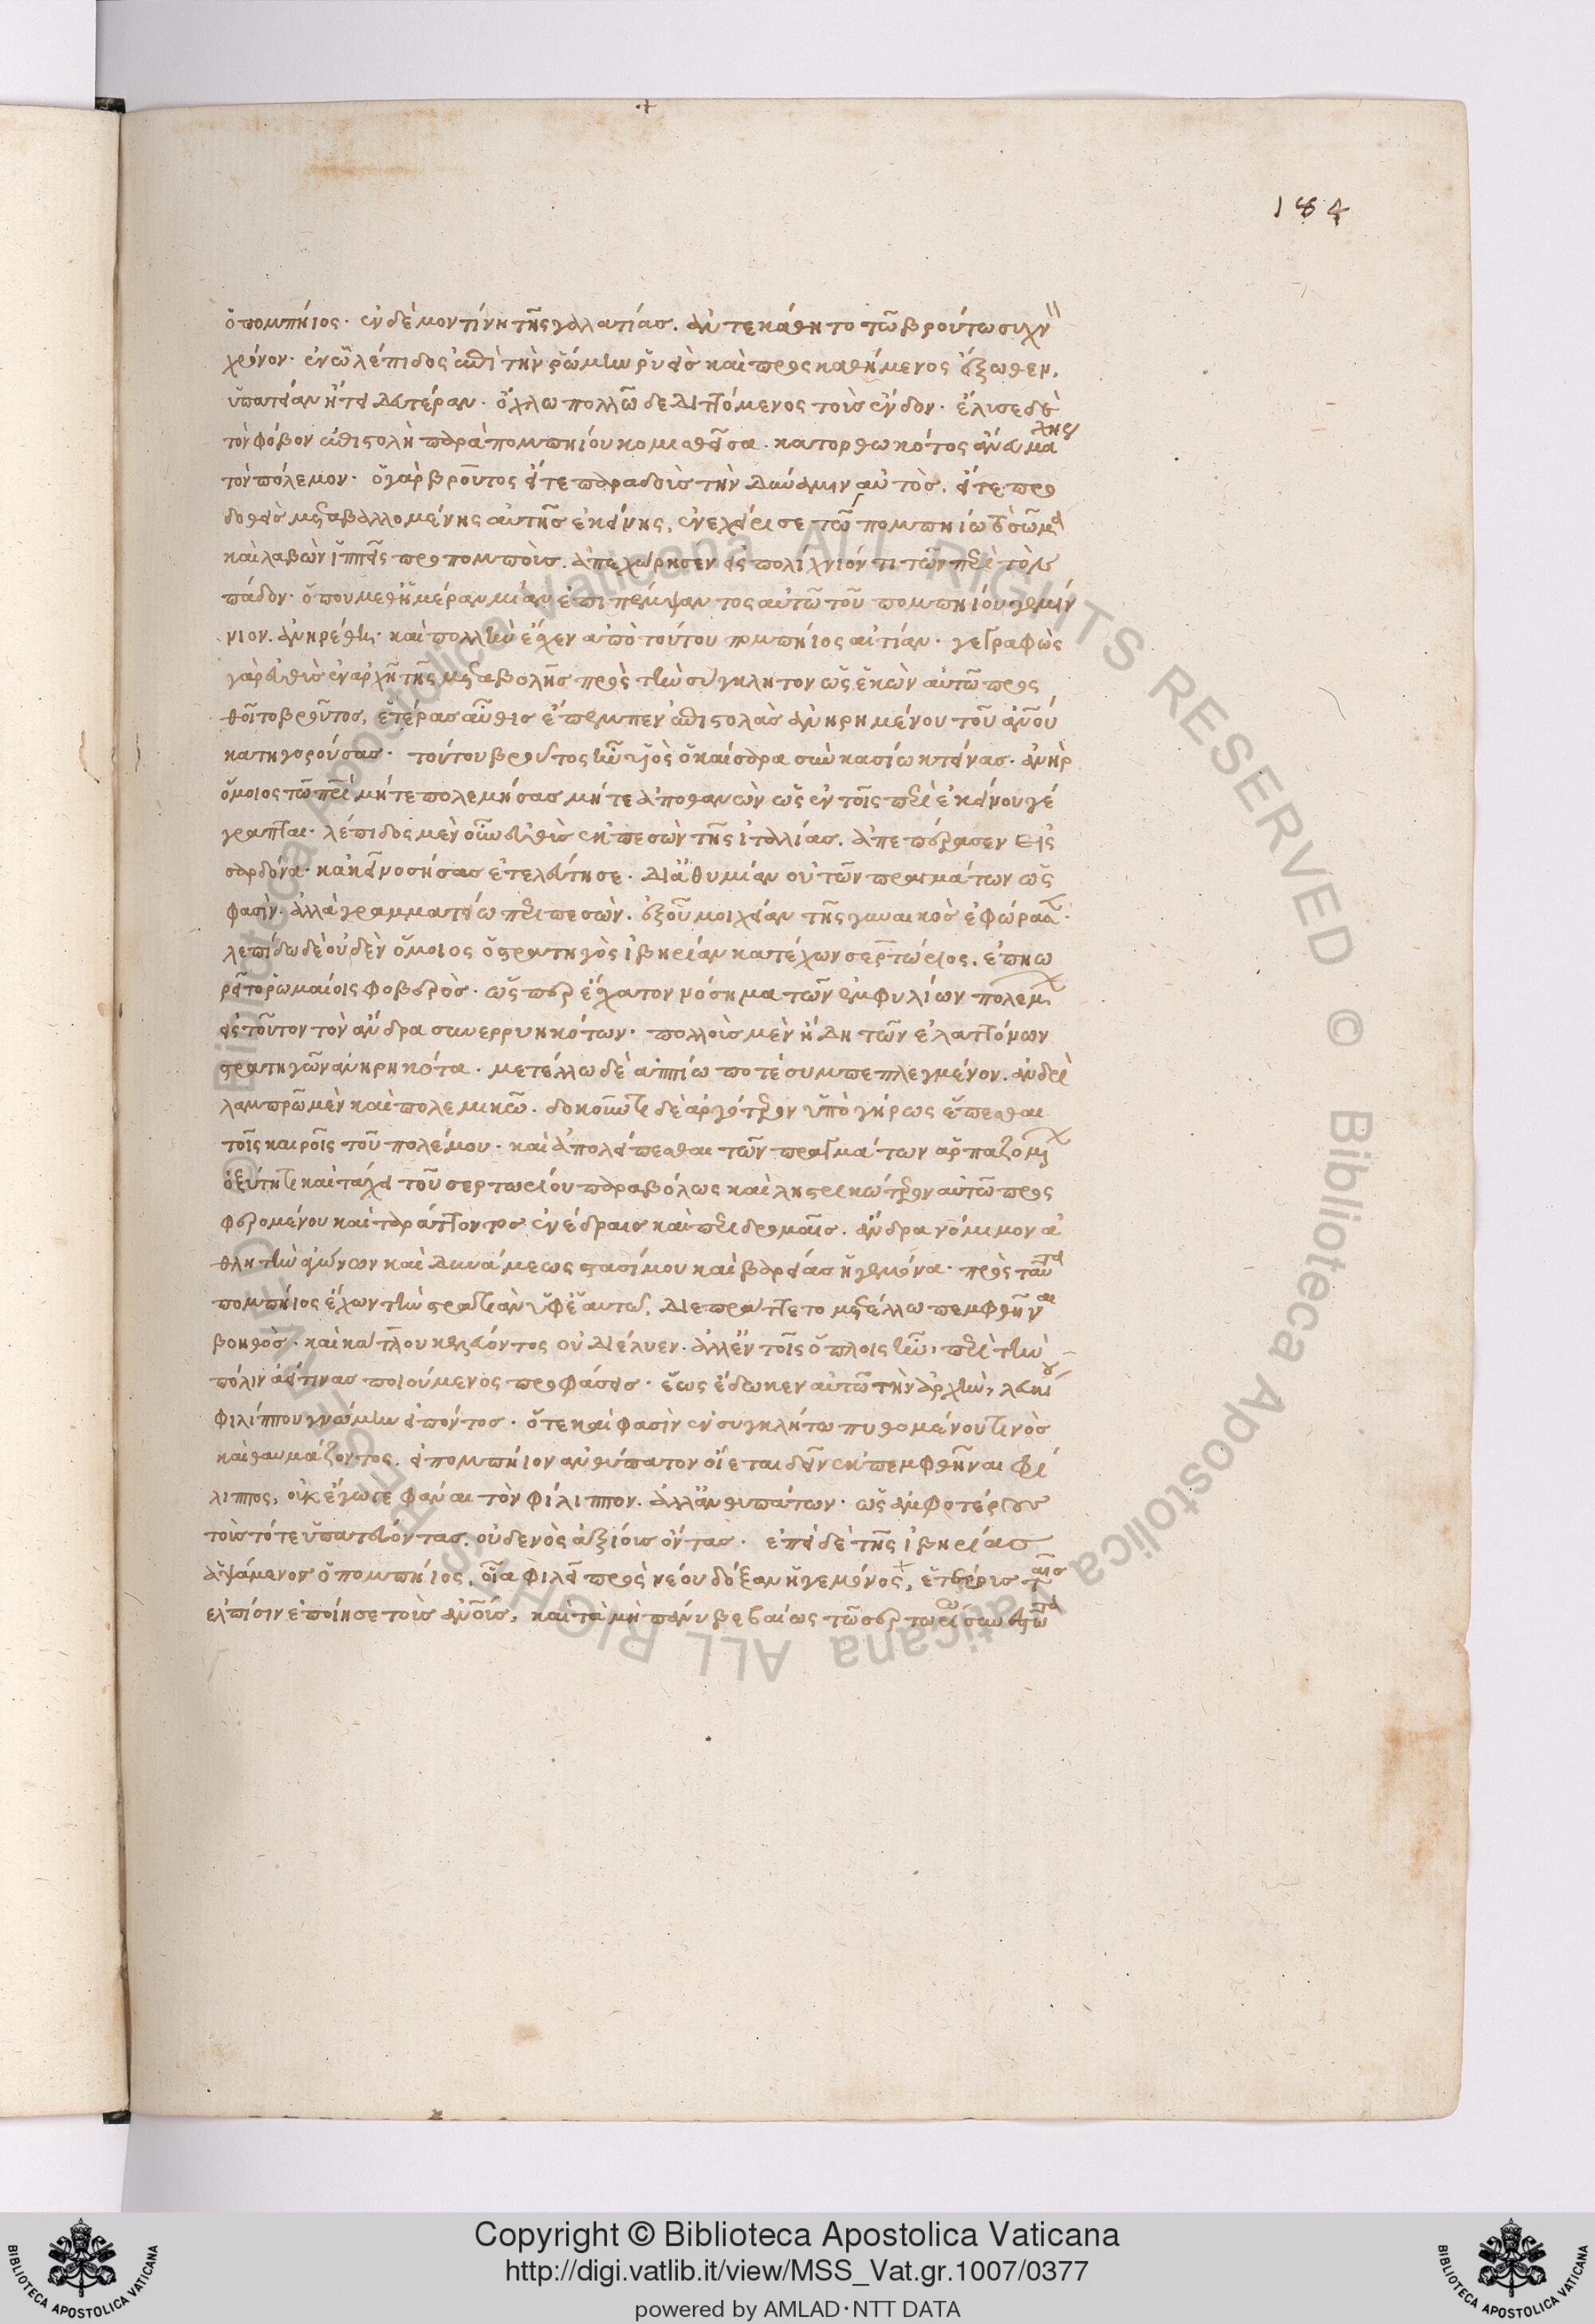 184
ὁ πομπήιος· ἐν δὲ μοντίνη τῆς γαλατίας. ἀντεκάθητο τῶ βρούτω συχνὸν
χρόνον· ἐν ᾧ λέπιδος ἐπὶ τὴν ῥώμην ῥυεὶς καὶ προσκαθήμενος ἔξωθεν,
ὑπατείαν ἤτει δευτέραν· ὄχλω πολλῶ δεδιττόμενος τοὺς ἔνδον· ἔλυσε δὲ
τὸν φόβον ἐπιστολὴ παρὰ πομπηίου κομισθεῖσα. κατορθωκότος ἄνευ μάχης
τὸν πόλεμον· ὁ γὰρ βροῦτος εἴτε παραδοὺς τὴν δύναμιν αὐτὸς, εἴτε προ
δοθεὶς μεταβαλλομένης αὐτῆς ἐκείνης, ἐνεχείρισε τῶ πομπηίω τὸ σῶμα
καὶ λαβὼν ἱππεῖς προπομποὺς. ἀπεχώρησεν εἰς πολίχνιόν τι τῶν περὶ τὸν
πάδον· ὅπου μεθ' ἡμέραν μίαν ἐπιπέμψαντος αὐτῶ τοῦ πομπηίου γεμίν
νιον. ἀνηρέθη· καὶ πολλὴν ἔσχεν ἀπὸ τούτου πομπήιος αἰτίαν· γεγραφὼς
γὰρ εὐθὺς ἐν ἀρχῆ τῆς μεταβολῆς πρὸς τὴν σύγκλητον ὡς ἑκὼν αὐτῶ προς
θοῖτο βροῦτος, ἑτέρας αὖθις ἔπεμπεν ἐπιστολὰς ἀνηρημένου τοῦ ἀνου
κατηγορούσας· τούτου βροῦτος ἦν υἱὸς ὁ καίσαρα σὺν κασίω κτείνας. ἀνὴρ
ὅμοιος τῶ πατρὶ μήτε πολεμήσας μήτε ἀποθανὼν ὡς ἐν τοῖς περὶ ἐκείνου γέ
γραπται· λέπιδος μὲν οὖν εὐθὺς ἐκπεσὼν τῆς ἰταλίας. ἀπεπέρασεν εἰς
σαρδόνα· κἀκεῖ νοσήσας ἐτελεύτησε· δι' ἀθυμίαν οὐ τῶν πραγμάτων ὥς
φασιν. ἀλλὰ γραμματείω περιπεσὼν. ἐξ οὗ μοιχείαν τῆς γυναικὸς ἐφώρασε·
λεπίδω δὲ οὐδὲν ὅμοιος ὁ στρατηγὸς ἰβηρίαν κατέχων σερτώριος. ἐπηω
ρεῖτο ῥωμαίοις φοβερὸς. ὥσπερ ἔσχατον νόσημα τῶν ἐμφυλίων πολέμων
εἰς τοῦτον τὸν ἄνδρα συνερρυηκότων· πολλοὺς μὲν ἤδη τῶν ἐλαττόνων
στρατηγῶν ἀνηρηκότα. μετέλλω δὲ ἀππίω ποτὲ συμπεπλεγμένον. ἀνδρὶ
λαμπρῶ μὲν καὶ πολεμικῶ. δοκοῦντι δὲ ἀργότερον ὑπὸ γήρως ἕπεσθαι
τοῖς καιροῖς τοῦ πολέμου· καὶ ἀπολείπεσθαι τῶν πραγμάτων ἁρπαζομένων
ὀξύτητι καὶ τάχει τοῦ σερτωρίου παραβόλως καὶ ληστρικώτερον αὐτῶ προς
φερομένου καὶ ταράττοντος ἐνέδραις καὶ περιδρομαῖς. ἄνδρα νόμιμον ἀ
θλητὴν ἀγώνων καὶ δυνάμεως στασίμου καὶ βαρείας ἡγεμόνα· πρὸς ταῦτα
πομπήιος ἔχων τὴν στρατιὰν ὑφ' ἑαυτῶ. διεπράττετο μετέλλω πεμφθῆναι
βοηθὸς· καὶ κάτλου κελεύοντος οὐ διέλυεν. ἀλλ' ἐν τοῖς ὅπλοις ἦν, περὶ τὴν
πόλιν ἀεί τινας ποιούμενος προφάσεις· ἕως ἔδωκεν αὐτῶ τὴν ἀρχὴν, λευκίου
φιλίππου γνώμην εἰπόντος· ὅτε καί φασιν ἐν συγκλήτω πυθομένου τινὸς
καὶ θαυμάζοντος. εἰ πομπήιον ἀνθύπατον οἴεται δεῖν ἐκπεμφθῆναι φί
λιππος, οὐκ ἔγωγε φάναι τὸν φίλιππον. ἀλλ' ἀνθυπάτων· ὡς ἀμφοτέρους
τοὺς τότε ὑπατεύοντας. οὐδενὸς ἀξίους ὄντας· ἐπεὶ δὲ τῆς ἰβηρίας
ἁψάμενος ὁ πομπήιος, οἷα φιλεῖ πρὸς νέου δόξαν ἡγεμόνος, ἑτέρους ταῖς
ἐλπίσιν ἐποίησε τοὺς ἀνους, καὶ τὰ μὴ πάνυ βεβαίως τῶ σερτωρίω συνεστῶτα
Copyright © Biblioteca Apostolica Vaticana
http://digi.vatlib.it/view/MSS_Vat.gr.1007/0377
powered by AMLAD·NTT DATA
BIBLIOTECA APOSTOLICA VATICANA
BIBLIOTECA APOSTOLICA VATICANA
© Biblioteca Apostolica Vaticana ALL RIGHTS RESERVED © Biblioteca Apostolica Vaticana ALL RIGHTS RESERVED